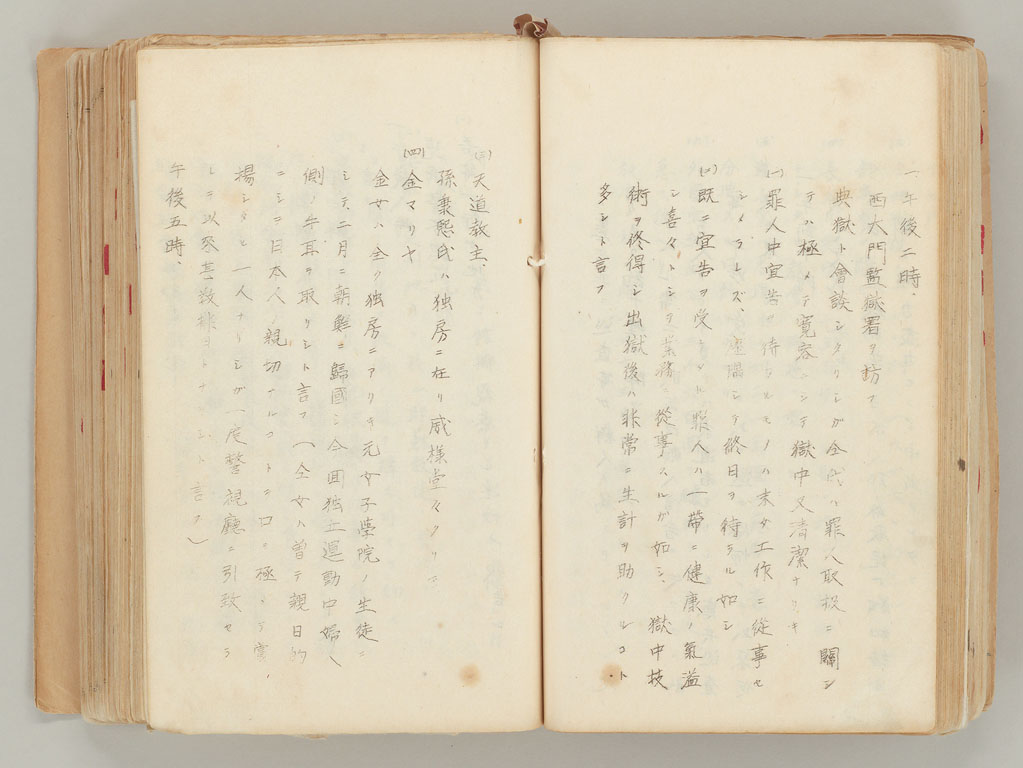 一、午後二時、
西大門監獄署ヲ訪フ
典獄ト會談シタリシガ全氏ハ罪人取扱ニ關シ
テハ極メテ寛容ニシテ獄中又清潔ナリキ
(一)罪人中宣告ヲ待ちルモノハ未ダ工作ニ從事セ
シメラレズ、シテ終日ヲ待ツル如シ
(二)既ニ宣告ヲ受ケタル罪人ハ一帶ニ健康ノ氣溢
シ喜々トシテ業務ニ從事スルガ如シ、獄中技
術ヲ修得シ出獄後ハ非常ニ生計ヲ助クルコト
多シト言フ
(三)天道教主、
孫秉熙氏ハ独房ニ在リ威様堂々タリ
(四)金マリヤ
金女ハ全ク独房ニアリキ元女子學院ノ生徒ニ
シテ二月ニ朝鮮ニ歸國シ今回独立運動中婦人
側ノ牛耳ヲ取リシト言フ(全女ハ曾テ親日的
ニシテ日本人ノ親切ナルコトヲ口ヲ極メテ賞
揚シタル一人ナリシガ一度警視廳ニ引致セラ
レテ以来甚敷排日トナリシト言フ)
午後五時、